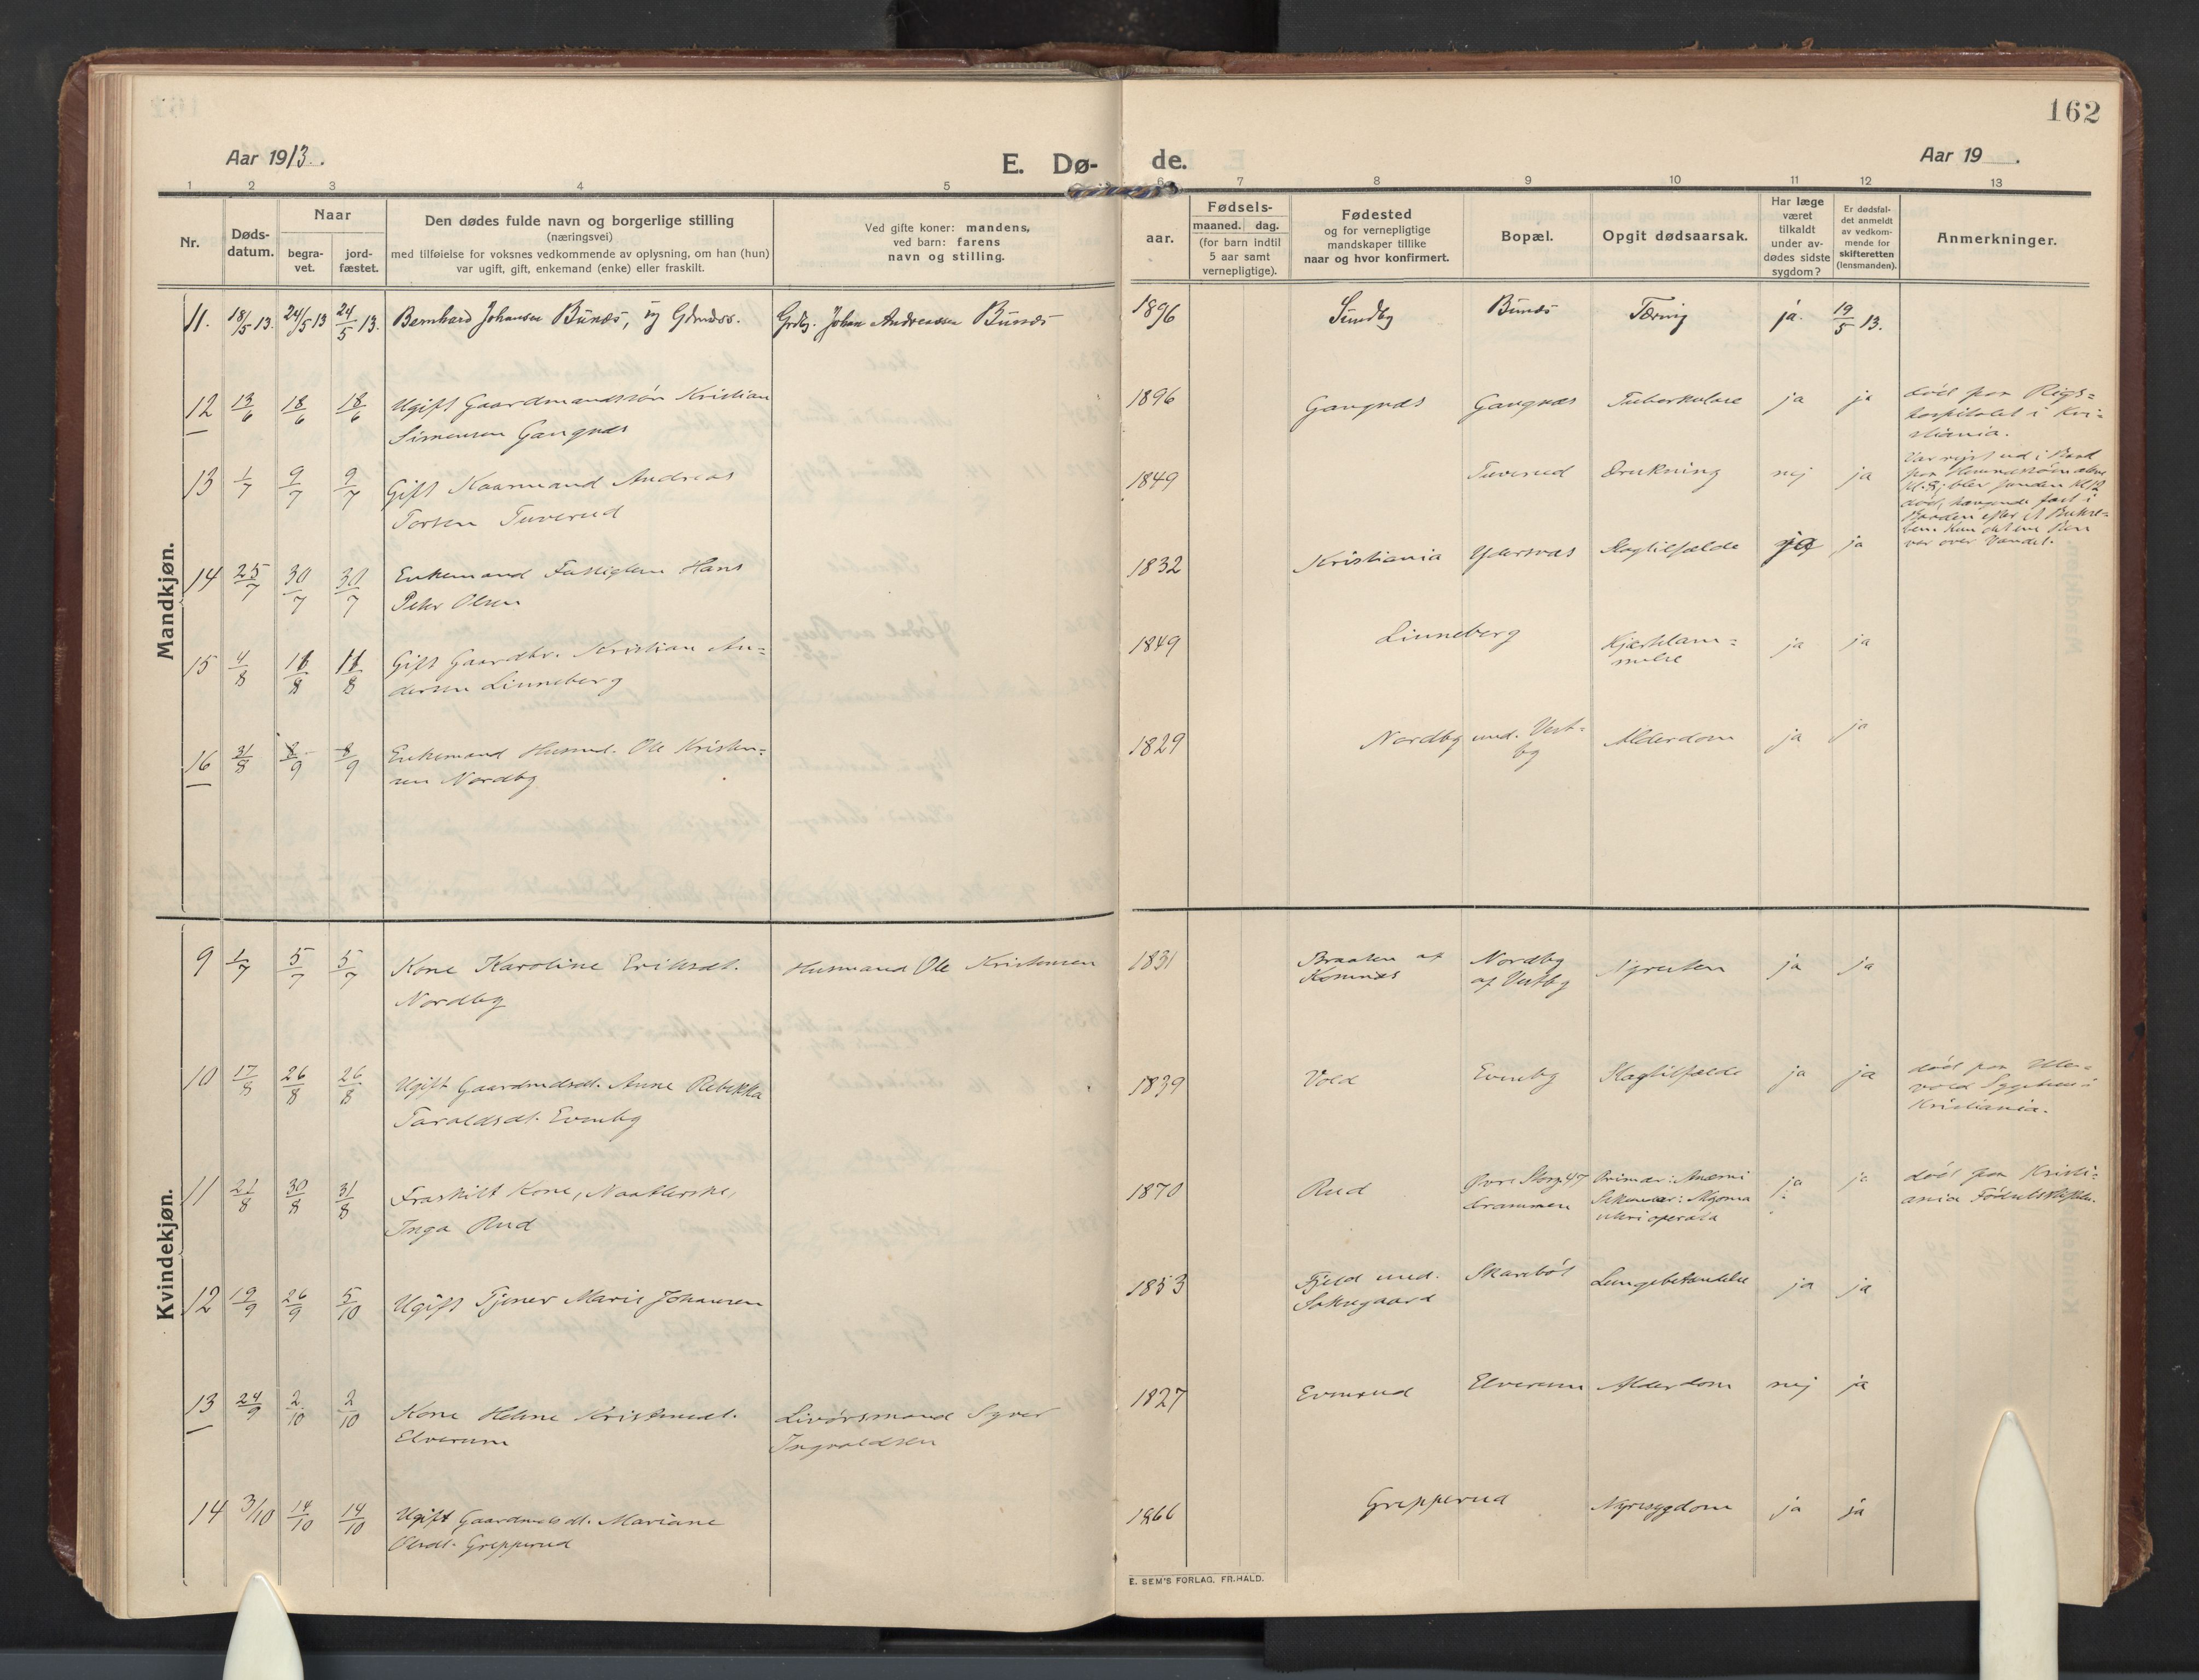 162
Aar 1913.
E. Dø-
de.
Aar 19 .
1 2 3 4 5 6 7 8 9 10 11 12 13
Nr.
Døds-
datum.
Naar
begra-
vet.
jord-
fæstet.
Den dødes fulde navn og borgerlige stilling
(næringsvei)
med tilføielse for voksnes vedkommende av oplysning, om han (hun)
var ugift, gift, enkemand (enke) eller fraskilt.
Ved gifte koner: mandens,
ved barn: farens
navn og stilling.
Fødsels-
aar.
maaned. dag.
(for barn indtil
5 aar samt
vernepligtige).
Fødested
og for vernepligtige
mandskaper tillike
naar og hvor konfirmert.
Bopæl.
Opgit dødsaarsak.
Har læge
været
tilkaldt
under av-
dødes sidste
sygdom?
Er dødsfal-
det anmeldt
av vedkom-
mende for
skifteretten
(lensmanden).
Anmerkninger.
Mandkjøn.
11. 18/5 13. 24/5 13 24/5 13. Bernhard Johansen Bunæs, ug Gdmdss. Grdbr. Johan Andreassen Bunæs 1896 Sundby Bunæs Tæring ja. 19/5 13.
12 13/6 18/6 18/6 Ugift Gaardmandssøn Kristian
Simensen Gangnæs
1896 Gangnæs Gangnæs Tuberkulose ja ja død paa Rigs=
hospitalet i Kri=
stiania.
13 1/7 9/7 9/7 Gift Kaarmand Andreas
Torsen Tuverud
1849 Tuverud Drukning nej ja
Var rejst ud i Baad
død, hængende fast i
var over Vandet.
14 25/7 30/7 30/7 Enkemand Fattiglem Hans
Peter Olsen
1832 Kristiania Ydersnæs Slagtilfælde ja ja
15 4/8 11/8 11/8 Gift Gaardbr. Kristian An=
dersen Linneberg
1849 Linneberg Hjertelam=
melse
ja ja
16 31/8 8/9 8/9 Enkemand Husmd. Ole Kristen=
sen Nordby
1829 Nordby und. Vest=
by
Alderdom ja ja
Kvindekjøn.
9 1/7 5/7 5/7 Kone Karoline Eriksdt.
Nordby
Husmand Ole Kristensen 1831 Braaten af
Komnæs
Nordby
af Vestby
Nyresten ja ja
10 17/8 26/8 26/8 Ugift Gaardmdsdt. Anne Rebekka
Taraldsdt. Evenby
1839 Vold Evenby Slagtilfælde ja ja død paa Ulle=
vold Sygehus i
Kristiania.
11 21/8 30/8 31/8 Fraskilt Kone, Naatlerske,
Inga Rud
1870 Rud Øvre Storg. 47
Drammen
Primær: Anæmi
Sekundær: Myoma
uteri operata
ja ja død paa Kristi=
ania Fødselsstiftelse.
12 19/9 26/9 5/10 Ugift Tjener Marie Johansen
1853 Fjeld und.
Solugaard
Skarebøl Lungebetændelse ja ja
13 24/9 2/10 2/10 Kone Helene Kristensdt.
Elverum
Livørsmand Syver
Ingvaldsen
1827 Evenrud Elverum Alderdom nej ja
14 3/10 14/10 14/10 Ugift Gaardmdsdt. Mariane
Olsdt. Grepperud
1866 Grepperud Nyresygdom ja ja
E. SEM'S FORLAG, FR.HALD.